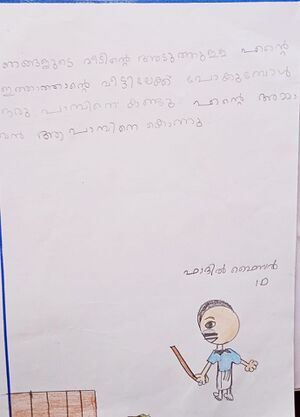 ഞങ്ങളുടെ വീടിന്റെ അടുത്തുള്ള എന്റെ
ഇത്താത്താന്റെ വീട്ടിലേക്ക് പോകുമ്പോൾ
ഒരു പാമ്പിനെ കണ്ടു. എന്റെ അമ്മാ
വൻ ആ പാമ്പിനെ കൊന്നു.
ഫാദിൽ ഹൈസൻ
1D